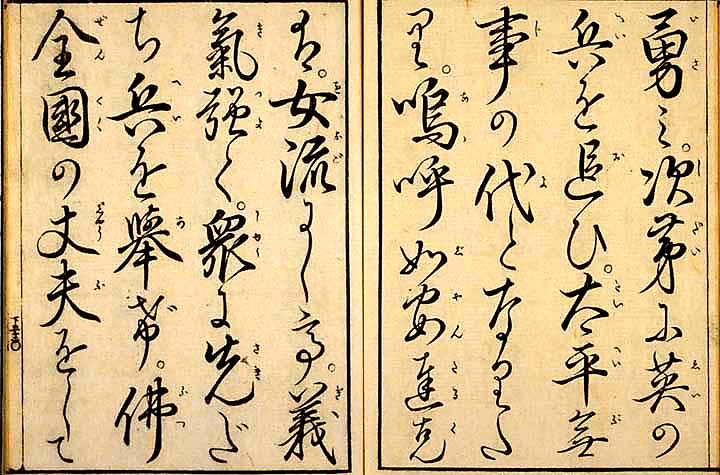 勇み。次第に英の
兵を追ひ。太平無
事の代となりた
り。嗚呼如安達克
は。女流にして。義
氣強く。衆に先だ
ち兵を擧げ。佛
全國の丈夫をして